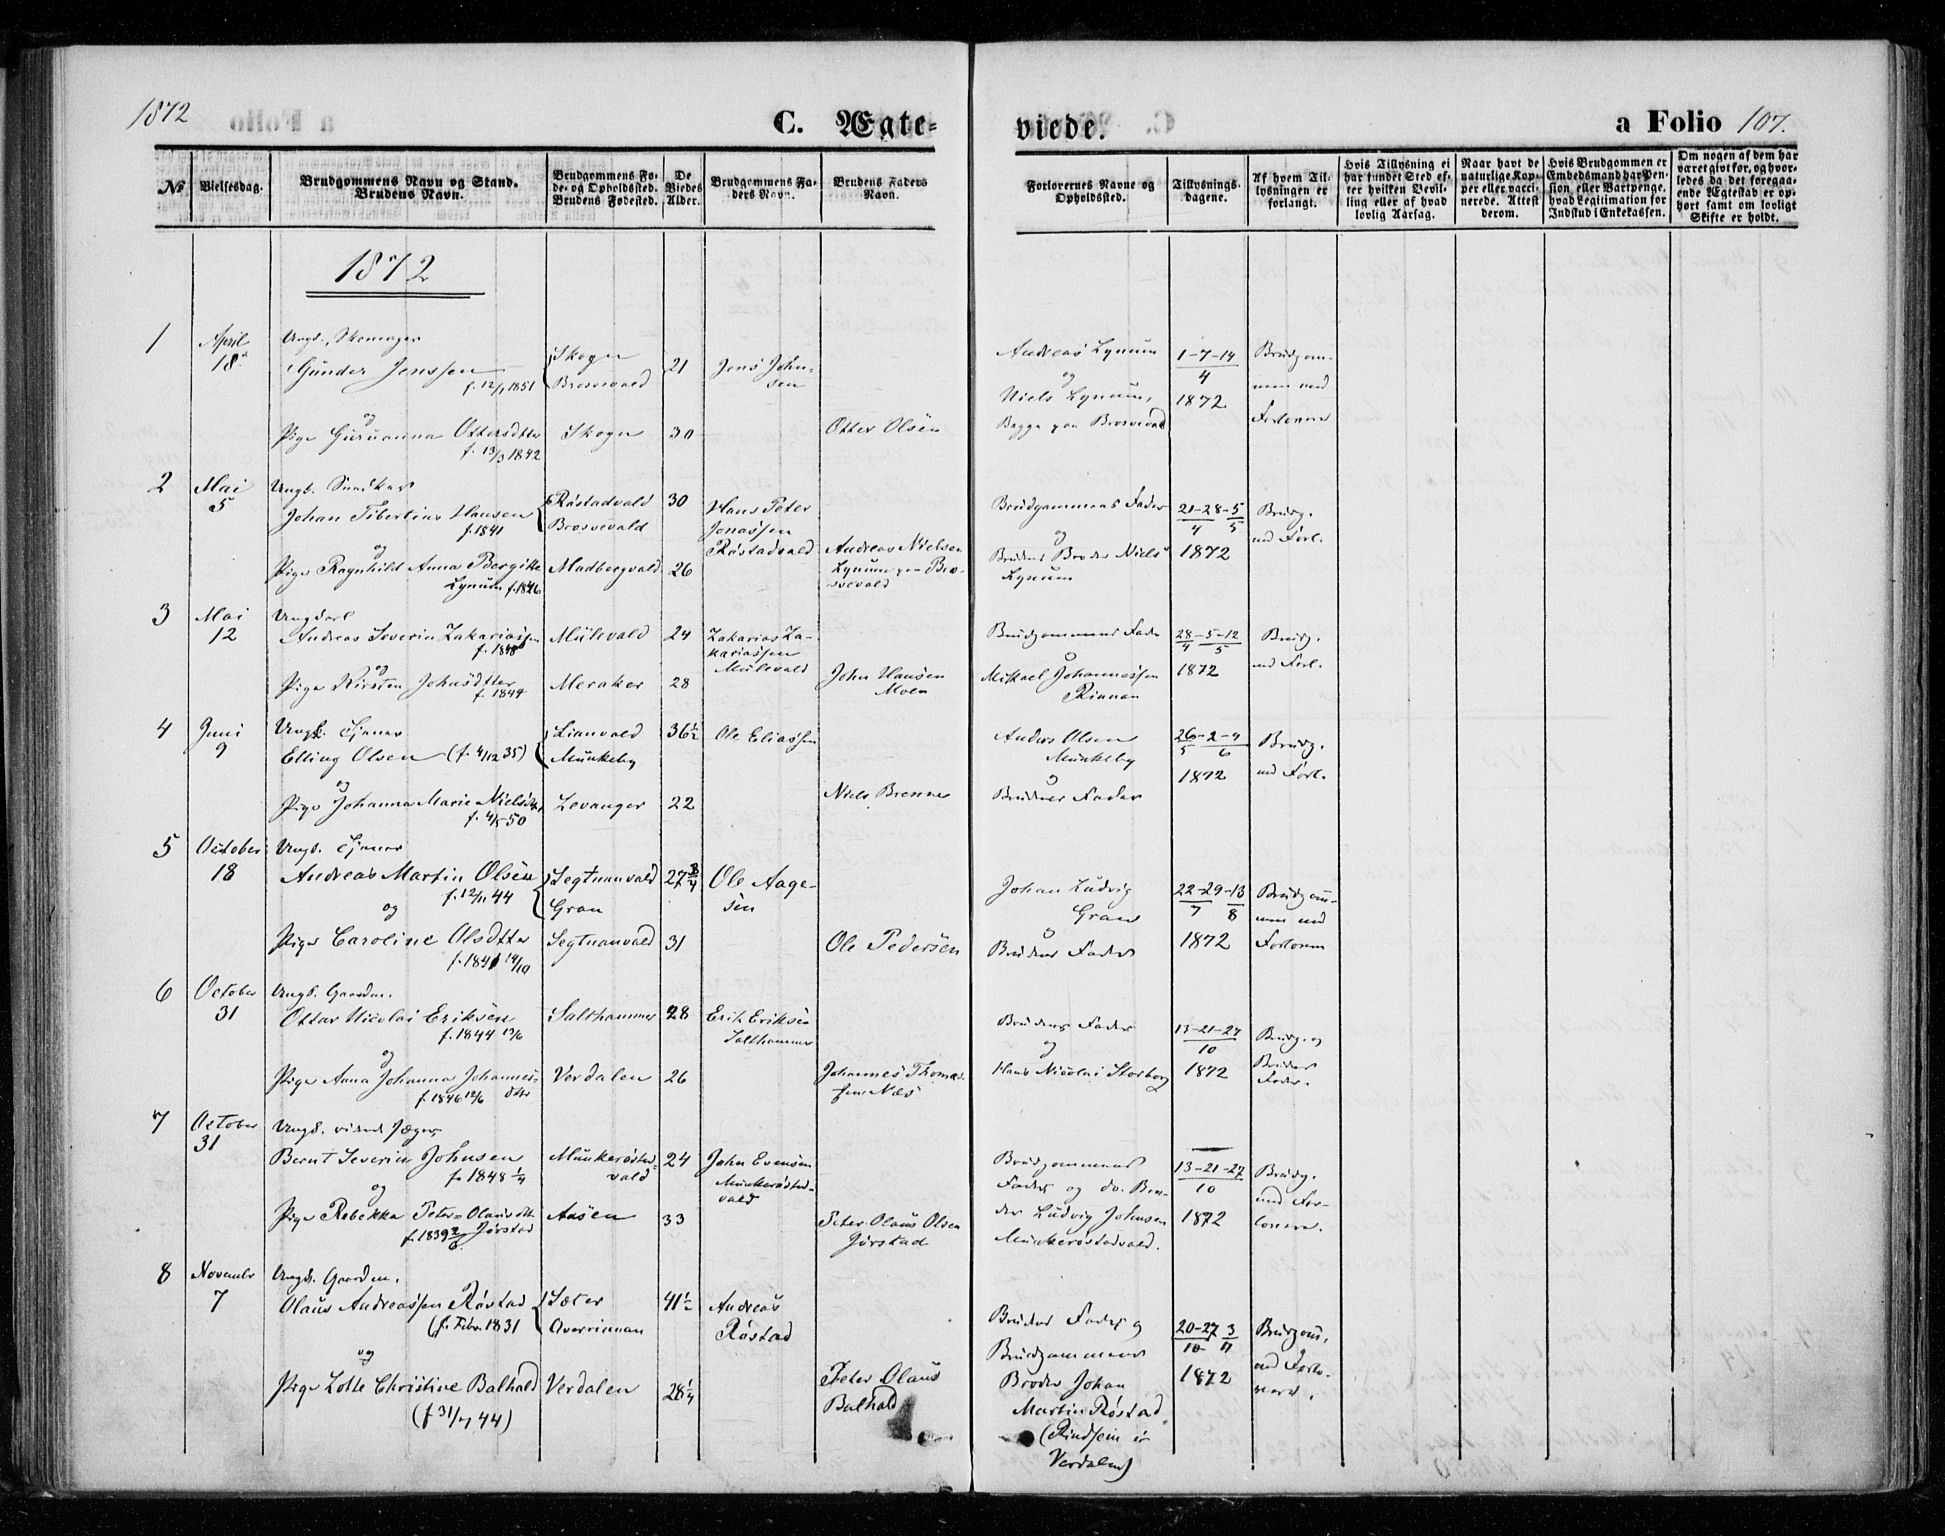 1872
C. Ægte-
viede.
a Folio 107.
№
Vielsesdag.
Brudgommens Navn og Stand.
Brudens Navn.
Brudgommens Fø-
de- og Opholdssted.
Brudens Fødested.
De
Viedes
Alder.
Brudgommens Fa-
ders Navn.
Brudens Faders
Navn.
Forlovernes Navne og
Opholdssted.
Tillysnings-
dagene.
Af hvem Til-
lysningen er
forlangt.
Hvis Tillysning ei
har fundet Sted ef-
ter hvilken Bevil-
ling eller af hvad
lovlig Aarsag.
Naar havt de
naturlige Kop-
per eller vacci-
nerede. Attest
derom.
Hvis Brudgommen er
Embedsmand har Pen-
sion eller Vartpenge,
hvad Legitimation for
Indskud i Enkekassen.
Om nogen af dem har
været gift før, og hvor-
ledes da det foregaa-
ende Ægteskab er op-
hørt samt om lovligt
Skifte er holdt.
1872
1
April
18
Ungk., Skomager
Gunder Jenssen
f. 12/1 1851
og
Pige Guruanna Ottersdtter
f. 13/3 1842
Skogn
Brosvevald
Skogn
21
30
Jens John-
sen
Otter Olsen
Andreas Lynum
og
Niels Lynum,
Begge paa Brosvevald
1-7-14
4
1872
Brudgom-
men med
Forlovere
2
Mai
5
Ungk.
Johan Tibertius Hansen
f. 1841
og
Pige Ragnhild Anna Bergitte
Lynum f. 1846
Røstadvald
Brosvevald
Madbergvald
30
26
Hans Peter
Jonassen
Røstadvald
Andreas Nielsen
Lynum paa Bro-
svevald
Brudgommens Fader
og
Brudens Broder Niels
Lynum
21-28-5
4 5
1872
Brudg.
med Forl.
3
Mai
12
Ungkarl
Andreas Severin Zakariassen
f. 1848
og
Pige Kirsten Johnsdtter
f. 1844
Mulevald
Meraker
24
28
Zakarias Za-
kariassen
Mulevald
John Hansen
Moen
Brudgommens Fader
o
Mikael Johannessen
Rinnan
28-5-12
4 5
1872
Brudg.
med Forl.
4
Juni
9
Ungk. Tjener
Elling Olsen (f. 4/12 35)
og
Pige Johanna Marie Nielsdtr
f. 4/5 50
Lianvald
Munkeby
Levanger
36½
22
Ole Eliassen
Niels Brenne
Anders Olsen
Munkeby
o
Brudens Fader
26-2-9
5 6
1872
Brudg.
med Forl.
5
October
18
Ungk. Tjener
Andreas Martin Olsen
f. 12/11 44
og
Pige Caroline Olsdtter
f. 1841 14/10
Segtnanvald
Gran
Segtnanvald
27¾
31
Ole Aage-
sen
Ole Pedersen
Johan Ludvig
Gran
o
Brudens Fader
22-29-13
7 8
1872
Brudgom-
men med
Forlovere
6
October
31
Ungk. Gaardm.
Ottar Nicolai Eriksen
f. 1844 13/6
og
Pige Anna Johanna Johannes-
f. 1846 12/6 dtter
Salthammer
Verdalen
28
26
Erik Eriksen
Salthammer
Johannes Thomas-
sen Næs
Brudens Fader
og
Hans Nicolai Storborg
13-21-27
10
1872
Brudg. og
Brudens
Fader.
7
October
31
Ungk. ridende Jæger,
Bernt Severin Johnsen
f. 1848 1/4
og
Pige Rebekka Peter-Olausdtr
f. 1839 2/6 Jørstad
Munkerøstad-
vald
Aasen
24
33
John Evensen
Munkerøstad-
vald
Peter Olaus Olsen
Jørstad
Brudgommens
Fader og do. Bro-
der Ludvig Johnsen
Munkerøstadvald.
13-21-27
10
1872
Brudg.
med For-
lovere.
8
November
7
Ungk. Gaardm.
Olaus Andreassen Røstad
(f. Febr. 1831
og
Pige Lotte Christine Balhald
(f. 31/7 44)
Sæter
Overrinnan
Verdalen
41½
28¼
Andreas
Røstad
Peter Olaus
Balhald
Brudens Fader og
Brudgommens
Broder Johan
Martin Røstad
(Rindsem i
Verdalen)
20-27 3
10 11
1872
Brudgom.
med Forlo-
vere.